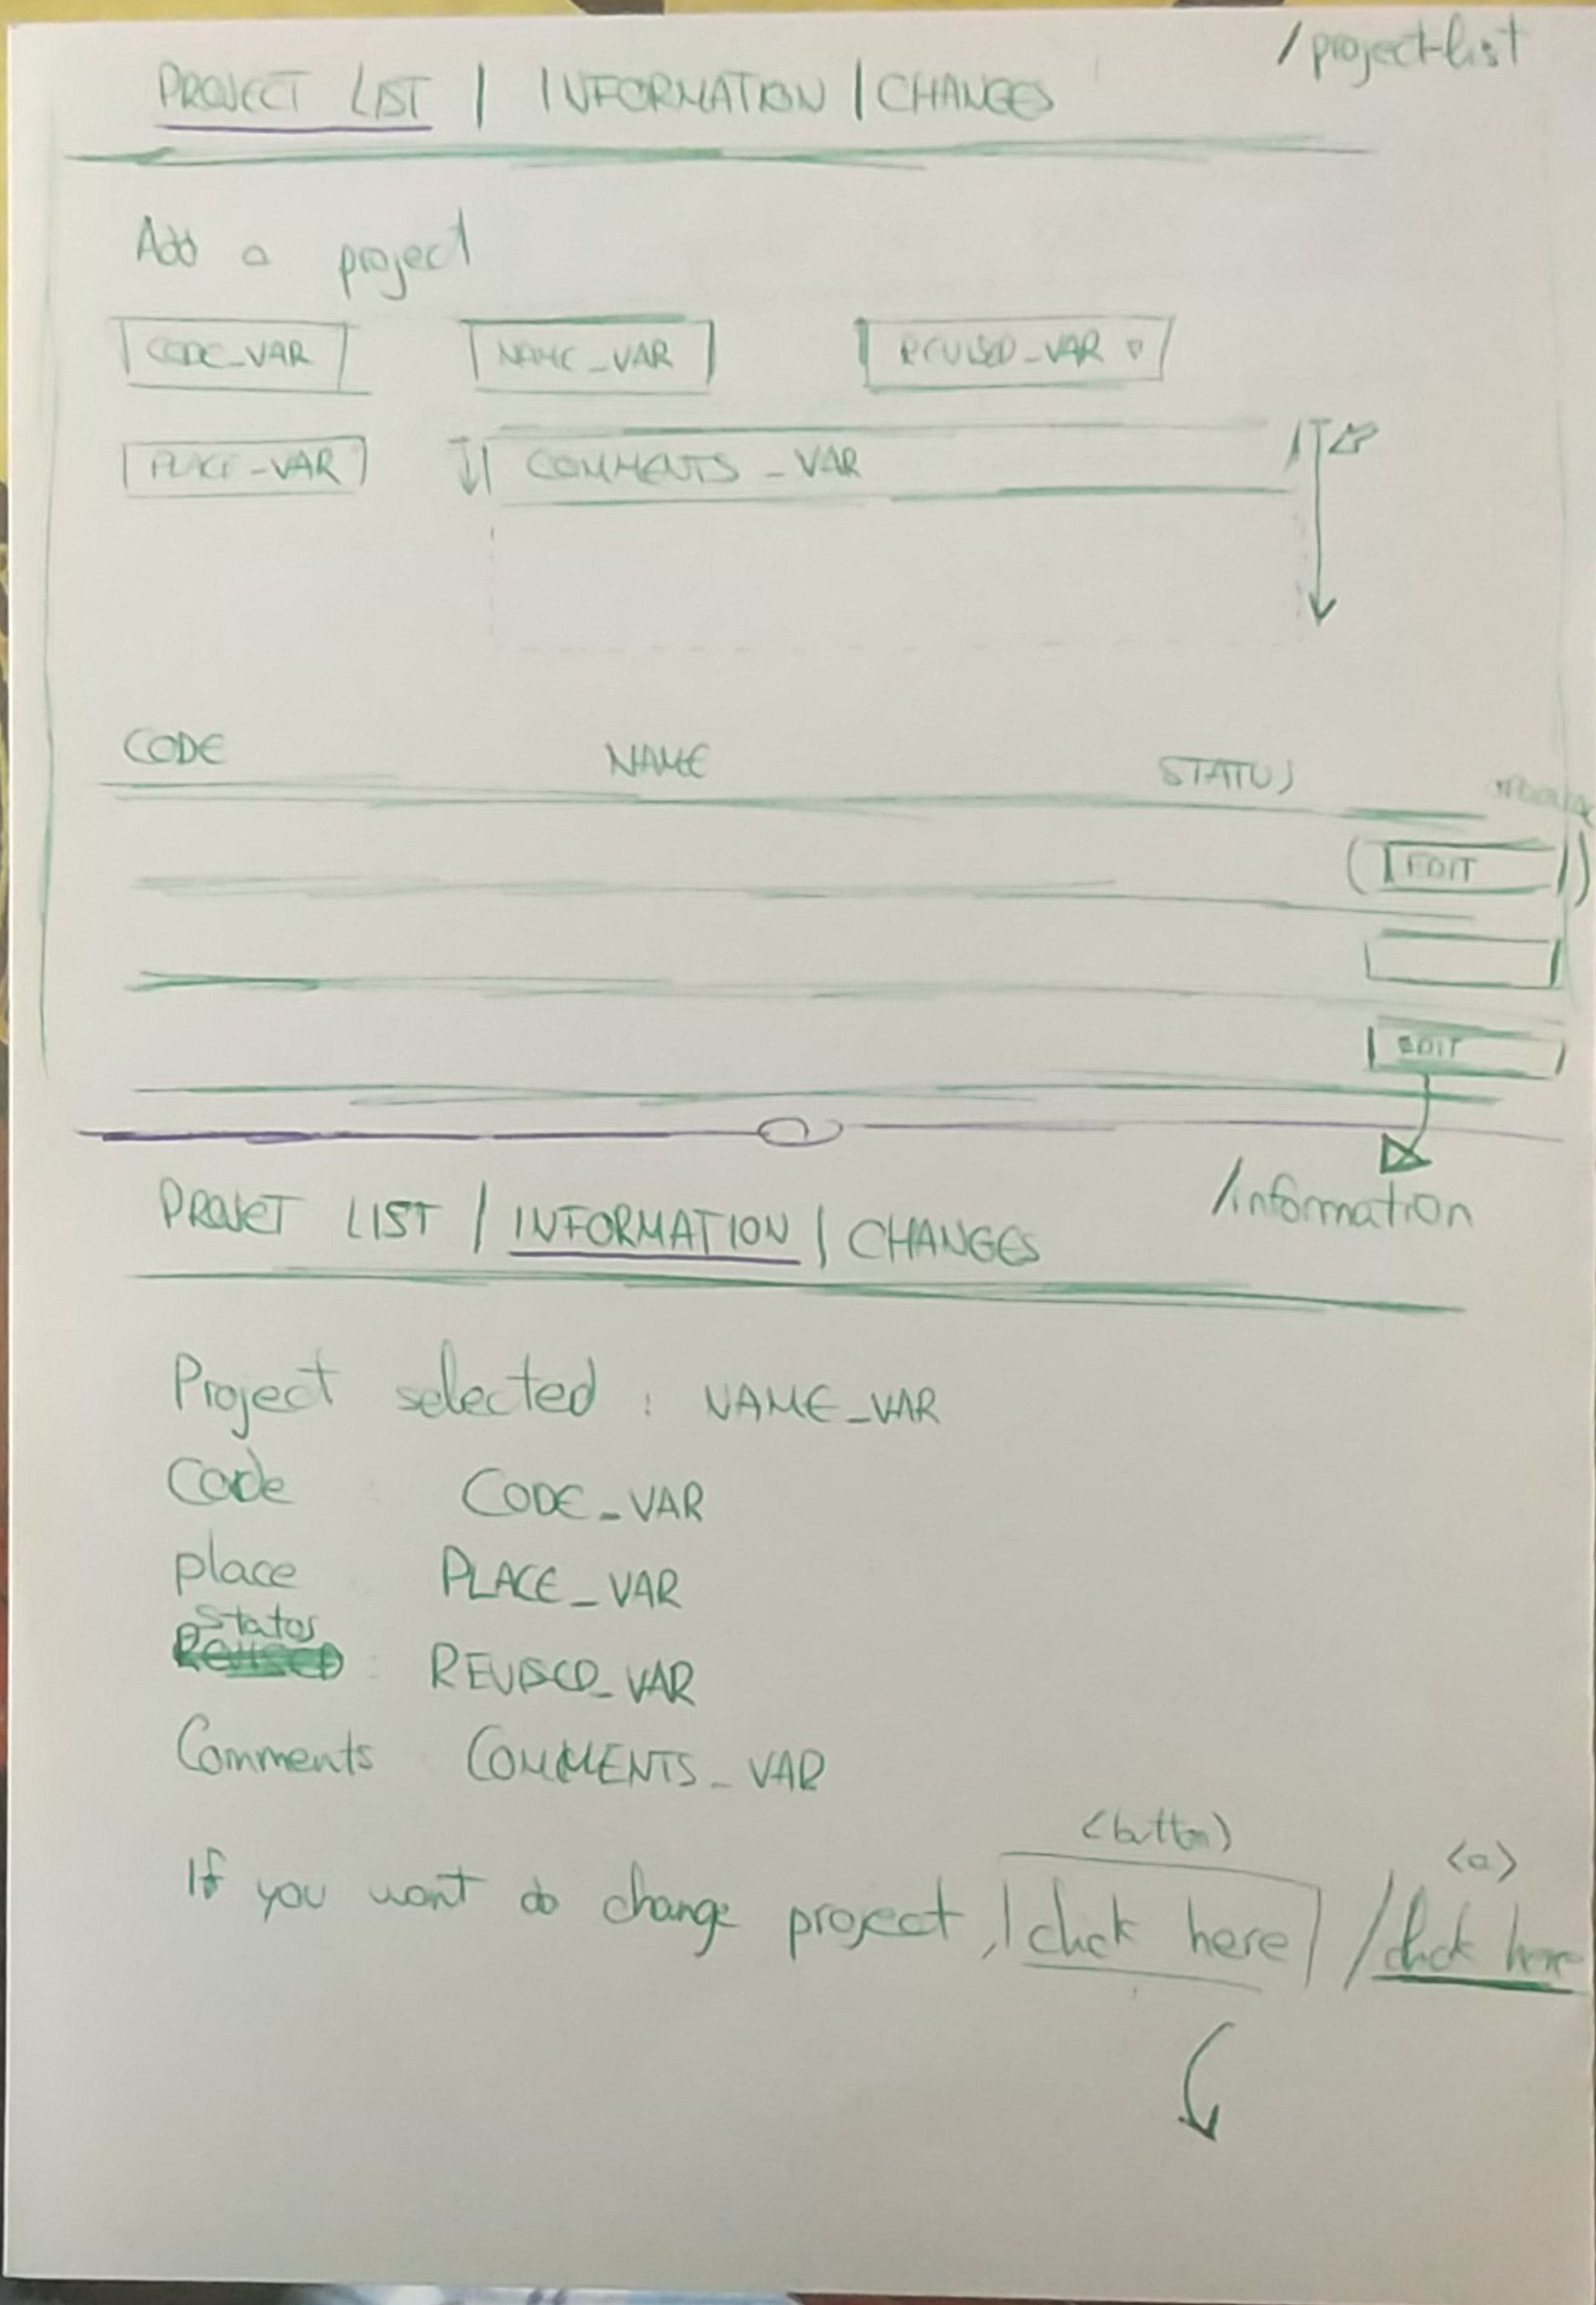 /project-list
PROJECT LIST | INFORMATION | CHANGES
Add a project
CODE_VAR NAME_VAR REVISED_VAR
PLACE_VAR COMMENTS_VAR
CODE NAME STATUS
EDIT
EDIT
/information
PROJET LIST | INFORMATION | CHANGES
Project selected : NAME_VAR
Code CODE_VAR
place PLACE_VAR
Status
REVISED : REVISED_VAR
Comments COMMENTS_VAR
(button) <a>
If you want do change project, click here / click here